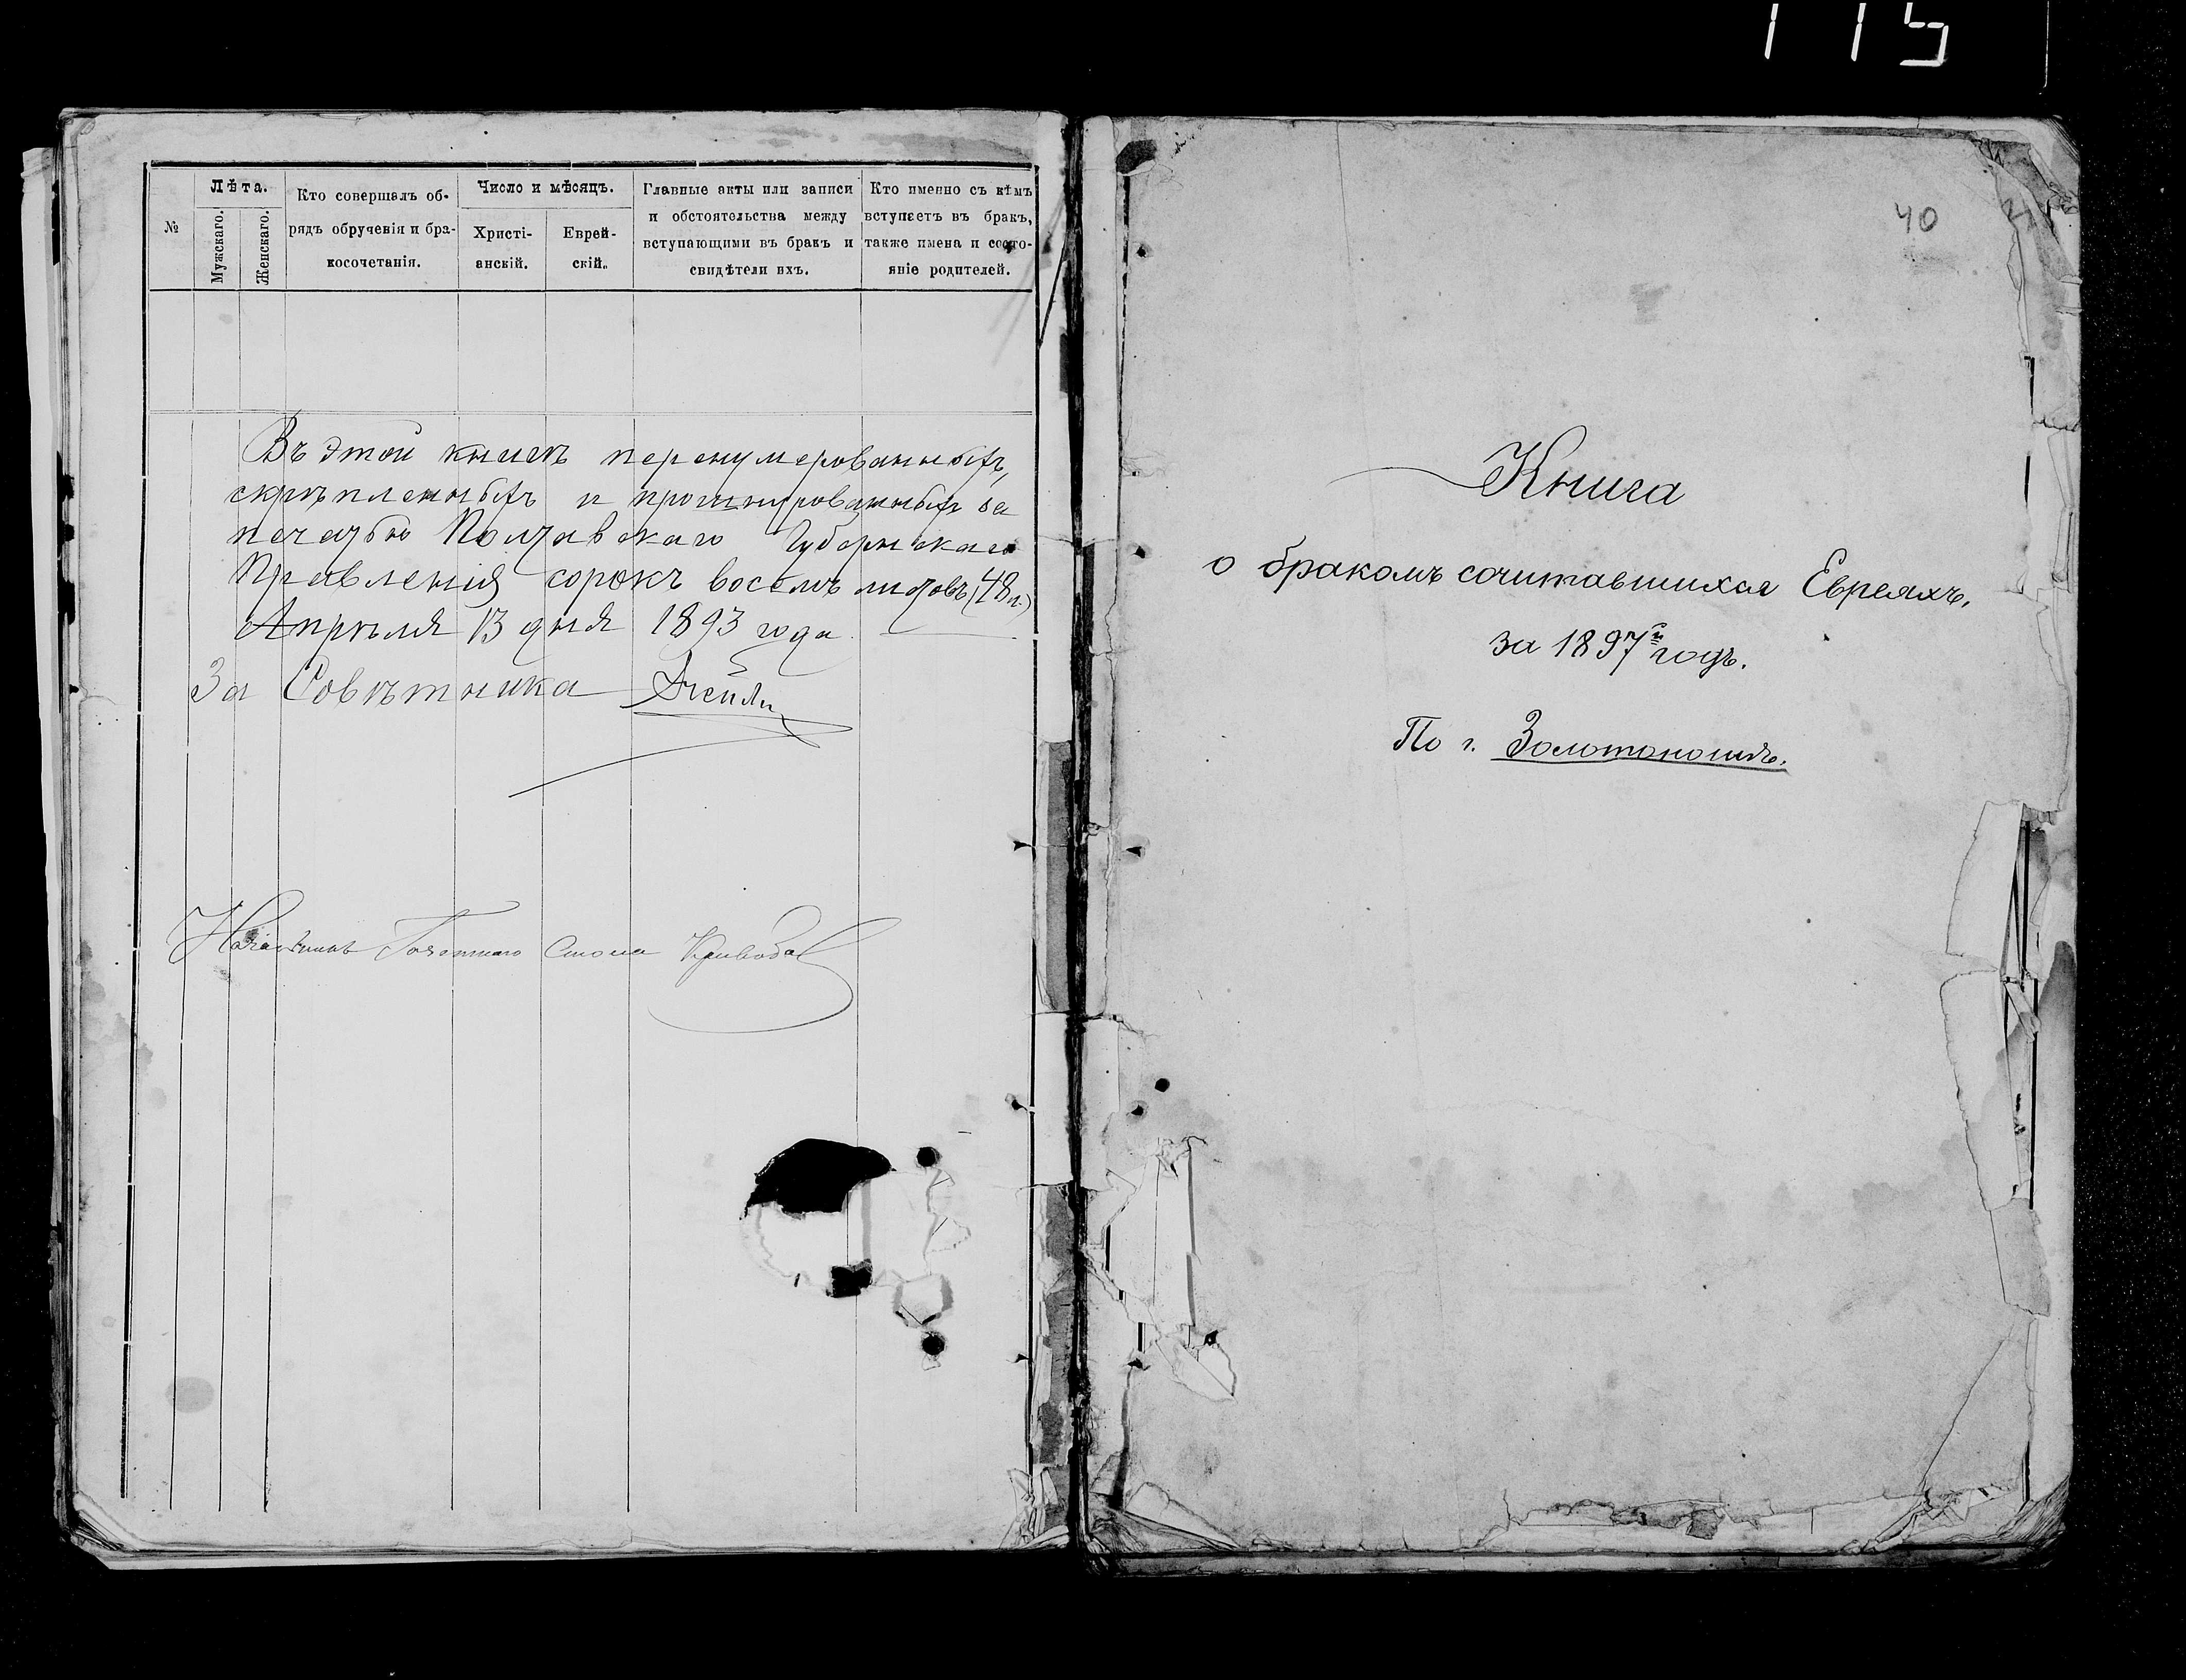 115
№
Лѣта.
Мужскаго.
Женскаго.
Кто совершалъ об-
рядъ обрученія и бра-
косочетанія.
Число и мѣсяцъ.
Христі-
анскій.
Еврей-
скій.
Главные акты или записи
и обстоятельства между
вступающими въ бракъ и
свидѣтели ихъ.
Кто именно съ кѣмъ
вступаетъ въ бракъ,
также имена и состо-
яніе родителей.
Въ этой книгѣ перенумерованныхъ,
скрѣпленныхъ и прошнурованныхъ за
печатью Полтавскаго Губернскаго
Правленія сорокъ восемь листовъ (48 л.)
Апрѣля 13 дня 1893 года
За Совѣтника
Начальникъ Стола
40
Книга
о бракомъ сочитавшихся Евреяхъ.
за 1897й годъ.
По г. Золотоношѣ.